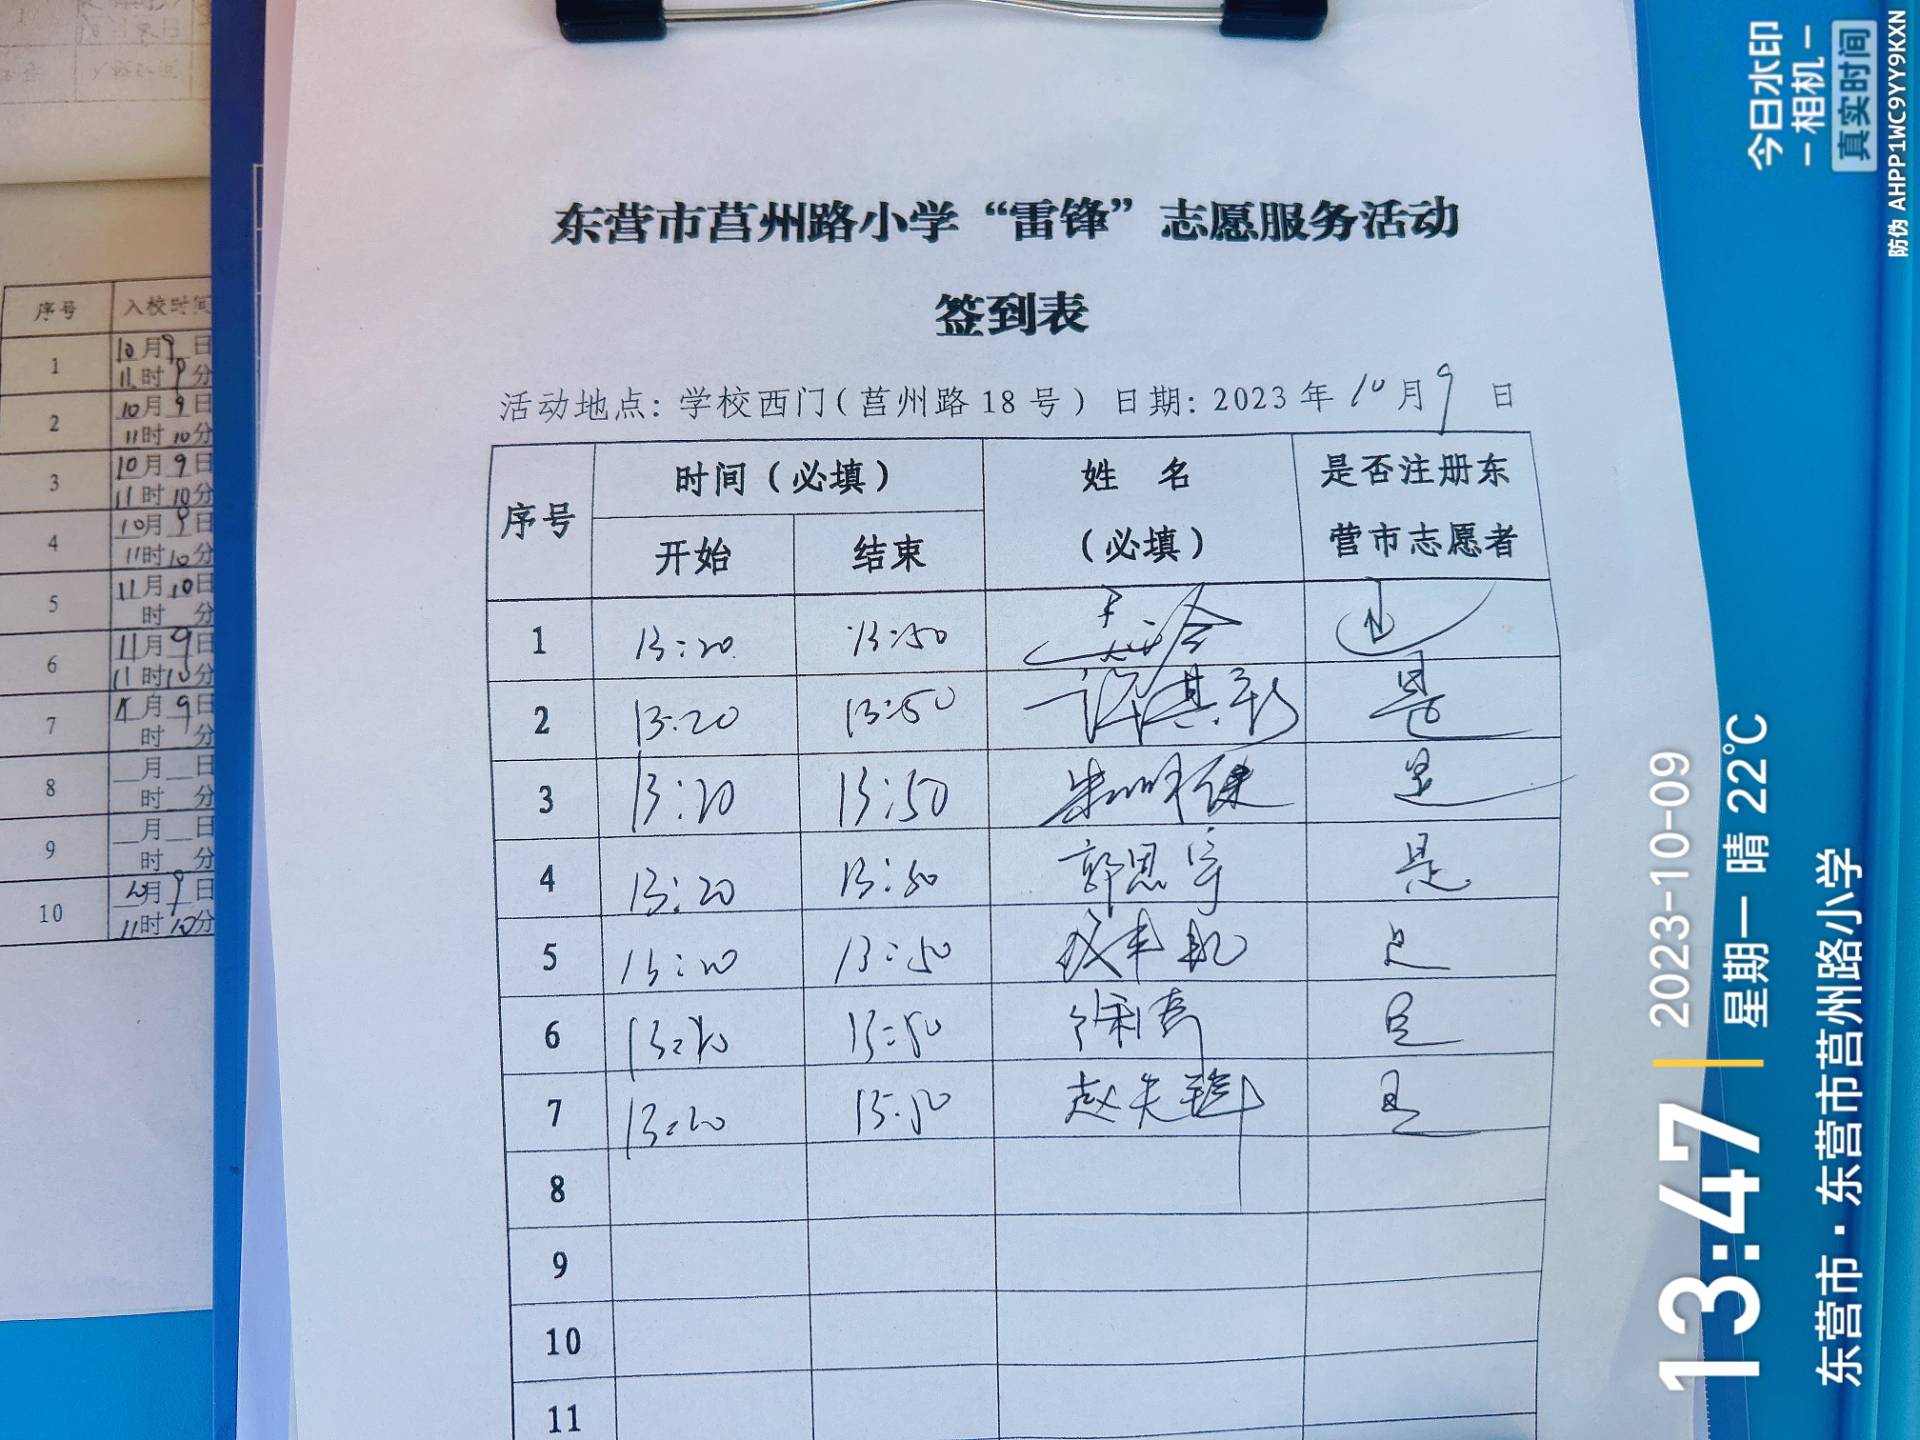 东营市莒州路小学“雷锋”志愿服务活动
签到表
活动地点：学校西门（莒州路18号）日期：2023年10月9日
序号 时间（必填） 姓 名（必填） 是否注册东营市志愿者
开始 结束
1 13:20 13:50 是
2 13:20 13:50 许其彩 是
3 13:20 13:50 是
4 13:20 13:50 郭思宇 是
5 13:20 13:50 是
6 13:20 13:50 徐利喜 是
7 13:20 13:50 是
8
9
10
11
序号 入校时间
1 10月9日
11时9分
2 10月9日
11时10分
3 10月9日
11时10分
4 10月9日
11时10分
5 11月10日
时 分
6 11月9日
11时10分
7 月9日
时 分
8 月 日
时 分
9 月 日
时 分
10 10月9日
11时10分
今日水印
-相机-
真实时间
防伪 AHPP1WC9YY9KXN
13:47
2023-10-09
星期一 晴 22℃
东营市·东营市莒州路小学